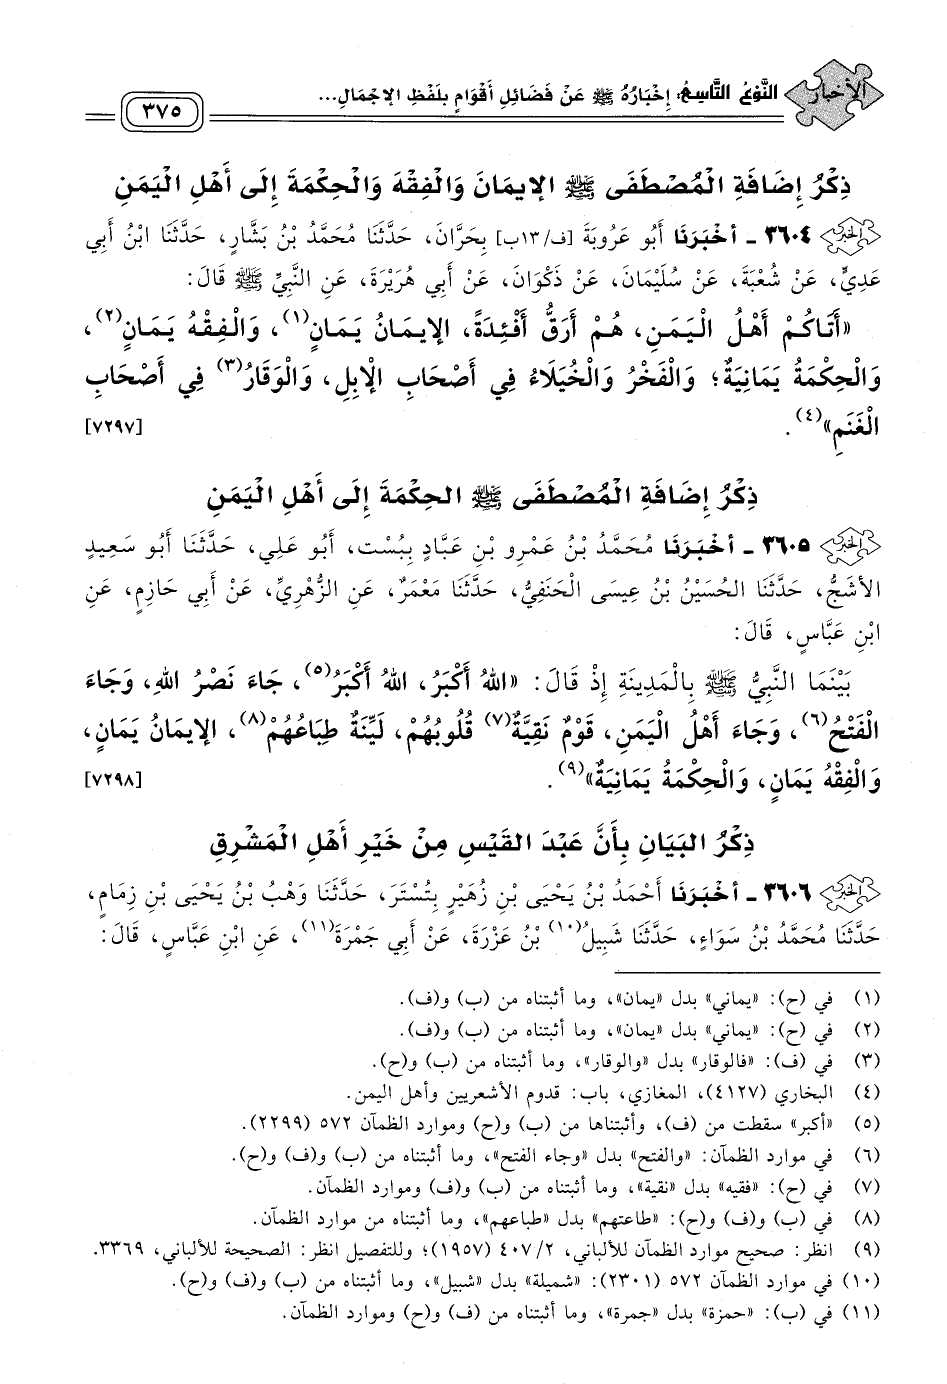 الأخبار
النَّوْعُ التَّاسِعُ: إِخْبَارُهُ ﷺ عَنْ فَضَائِلِ أَقْوَامٍ بِلَفْظِ الإِجْمَالِ...
٣٧٥
ذِكْرُ إِضَافَةِ الْمُصْطَفَى ﷺ الإِيمَانَ وَالْفِقْهَ وَالْحِكْمَةَ إِلَى أَهْلِ الْيَمَنِ
٣٦٠٤ - أَخْبَرَنَا أَبُو عَرُوبَةَ [ف/١٣ب] بِحَرَّانَ، حَدَّثَنَا مُحَمَّدُ بْنُ بَشَّارٍ، حَدَّثَنَا ابْنُ أَبِي
عَدِيٍّ، عَنْ شُعْبَةَ، عَنْ سُلَيْمَانَ، عَنْ ذَكْوَانَ، عَنْ أَبِي هُرَيْرَةَ، عَنِ النَّبِيِّ ﷺ قَالَ:
«أَتَاكُمْ أَهْلُ الْيَمَنِ، هُمْ أَرَقُّ أَفْئِدَةً، الإِيمَانُ يَمَانٍ(١)، وَالْفِقْهُ يَمَانٍ(٢)،
وَالْحِكْمَةُ يَمَانِيَةٌ؛ وَالْفَخْرُ وَالْخُيَلَاءُ فِي أَصْحَابِ الإِبِلِ، وَالْوَقَارُ(٣) فِي أَصْحَابِ
الْغَنَمِ»(٤). [٧٢٩٧]
ذِكْرُ إِضَافَةِ الْمُصْطَفَى ﷺ الحِكْمَةَ إِلَى أَهْلِ الْيَمَنِ
٣٦٠٥ - أَخْبَرَنَا مُحَمَّدُ بْنُ عَمْرِو بْنِ عَبَّادٍ بِبُسْت، أَبُو عَلِي، حَدَّثَنَا أَبُو سَعِيدٍ
الأَشَجُّ، حَدَّثَنَا الحُسَيْنُ بْنُ عِيسَى الْحَنَفِيُّ، حَدَّثَنَا مَعْمَرٌ، عَنِ الزُّهْرِيِّ، عَنْ أَبِي حَازِمٍ، عَنِ
ابْنِ عَبَّاسٍ، قَالَ:
بَيْنَمَا النَّبِيُّ ﷺ بِالْمَدِينَةِ إِذْ قَالَ: «اللهُ أَكْبَرُ، اللهُ أَكْبَرُ(٥)، جَاءَ نَصْرُ اللهِ، وَجَاءَ
الْفَتْحُ(٦)، وَجَاءَ أَهْلُ الْيَمَنِ، قَوْمٌ نَقِيَّةٌ(٧) قُلُوبُهُمْ، لَيِّنَةٌ طِبَاعُهُمْ(٨)، الإِيمَانُ يَمَانٍ،
وَالْفِقْهُ يَمَانٍ، وَالْحِكْمَةُ يَمَانِيَةٌ»(٩). [٧٢٩٨]
ذِكْرُ البَيَانِ بِأَنَّ عَبْدَ القَيْسِ مِنْ خَيْرِ أَهْلِ الْمَشْرِقِ
٣٦٠٦ - أَخْبَرَنَا أَحْمَدُ بْنُ يَحْيَى بْنِ زُهَيْرٍ بِتُسْتَرَ، حَدَّثَنَا وَهْبُ بْنُ يَحْيَى بْنِ زِمَامٍ،
حَدَّثَنَا مُحَمَّدُ بْنُ سَوَاءٍ، حَدَّثَنَا شَبِيلُ(١٠) بْنُ عَزْرَةَ، عَنْ أَبِي جَمْرَةَ(١١)، عَنِ ابْنِ عَبَّاسٍ، قَالَ:
(١) في (ح): «يماني» بدل «يمان»، وما أثبتناه من (ب) و(ف).
(٢) في (ح): «يماني» بدل «يمان»، وما أثبتناه من (ب) و(ف).
(٣) في (ف): «فالوقار» بدل «والوقار»، وما أثبتناه من (ب) و(ح).
(٤) البخاري (٤١٢٧)، المغازي، باب: قدوم الأشعريين وأهل اليمن.
(٥) «أكبر» سقطت من (ف)، وأثبتناها من (ب) و(ح) وموارد الظمآن ٥٧٢ (٢٢٩٩).
(٦) في موارد الظمآن: «والفتح» بدل «وجاء الفتح»، وما أثبتناه من (ب) و(ف) و(ح).
(٧) في (ح): «فقيه» بدل «نقية»، وما أثبتناه من (ب) و(ف) وموارد الظمآن.
(٨) في (ب) و(ف) و(ح): «طاعتهم» بدل «طباعهم»، وما أثبتناه من موارد الظمآن.
(٩) انظر: صحيح موارد الظمآن للألباني، ٤٠٧/٢ (١٩٥٧)؛ وللتفصيل انظر: الصحيحة للألباني، ٣٣٦٩.
(١٠) في موارد الظمآن ٥٧٢ (٢٣٠١): «شميلة» بدل «شبيل»، وما أثبتناه من (ب) و(ف) و(ح).
(١١) في (ب): «حمزة» بدل «جمرة»، وما أثبتناه من (ف) و(ح) وموارد الظمآن.